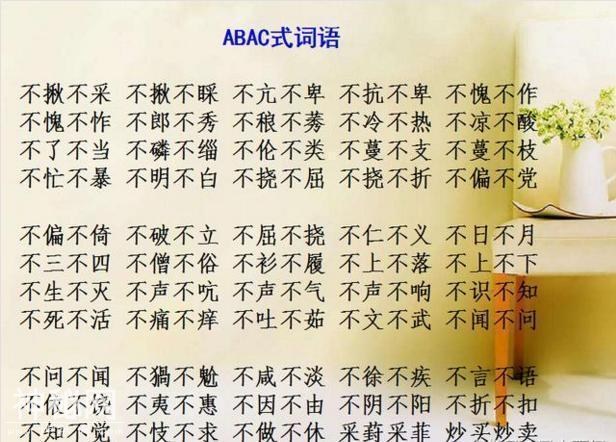 ABAC式词语
不揪不采 不揪不睬 不亢不卑 不抗不卑 不愧不作
不愧不怍 不郎不秀 不稂不莠 不冷不热 不凉不酸
不了不当 不磷不缁 不伦不类 不蔓不支 不蔓不枝
不忙不暴 不明不白 不挠不屈 不挠不折 不偏不党
不偏不倚 不破不立 不屈不挠 不仁不义 不日不月
不三不四 不僧不俗 不衫不履 不上不落 不上不下
不生不灭 不声不吭 不声不气 不声不响 不识不知
不死不活 不痛不痒 不吐不茹 不文不武 不闻不问
不问不闻 不猧不魀 不咸不淡 不徐不疾 不言不语
不夷不惠 不因不由 不阴不阳 不折不扣
不知不觉 不忮不求 不做不休 采葑采菲 炒买炒卖